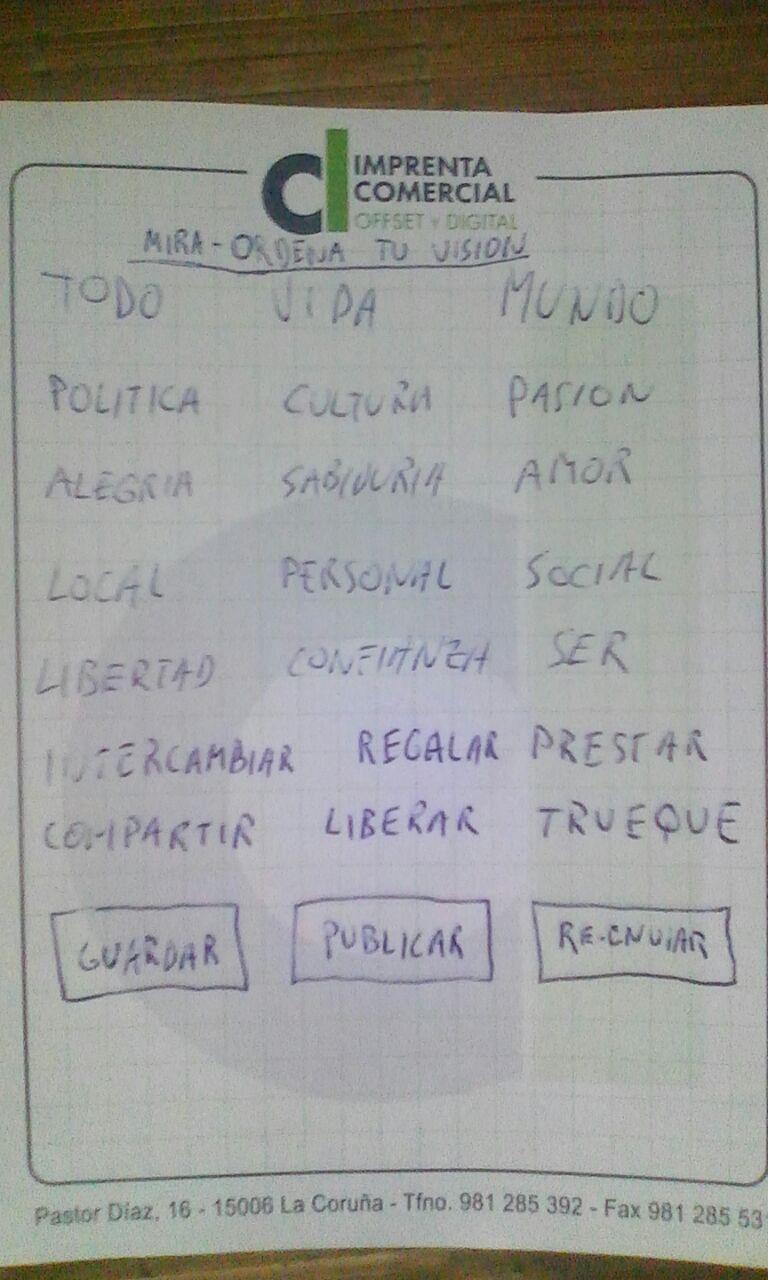 cl IMPRENTA
COMERCIAL
OFFSET Y DIGITAL
MIRA - ORDENA TU VISION
TODO VIDA MUNDO
POLITICA CULTURA PASION
ALEGRIA SABIDURIA AMOR
LOCAL PERSONAL SOCIAL
LIBERTAD CONFIANZA SER
INTERCAMBIAR REGALAR PRESTAR
COMPARTIR LIBERAR TRUEQUE
GUARDAR PUBLICAR RE-ENVIAR
Pastor Díaz, 16 - 15006 La Coruña - Tfno. 981 285 392 - Fax 981 285 53